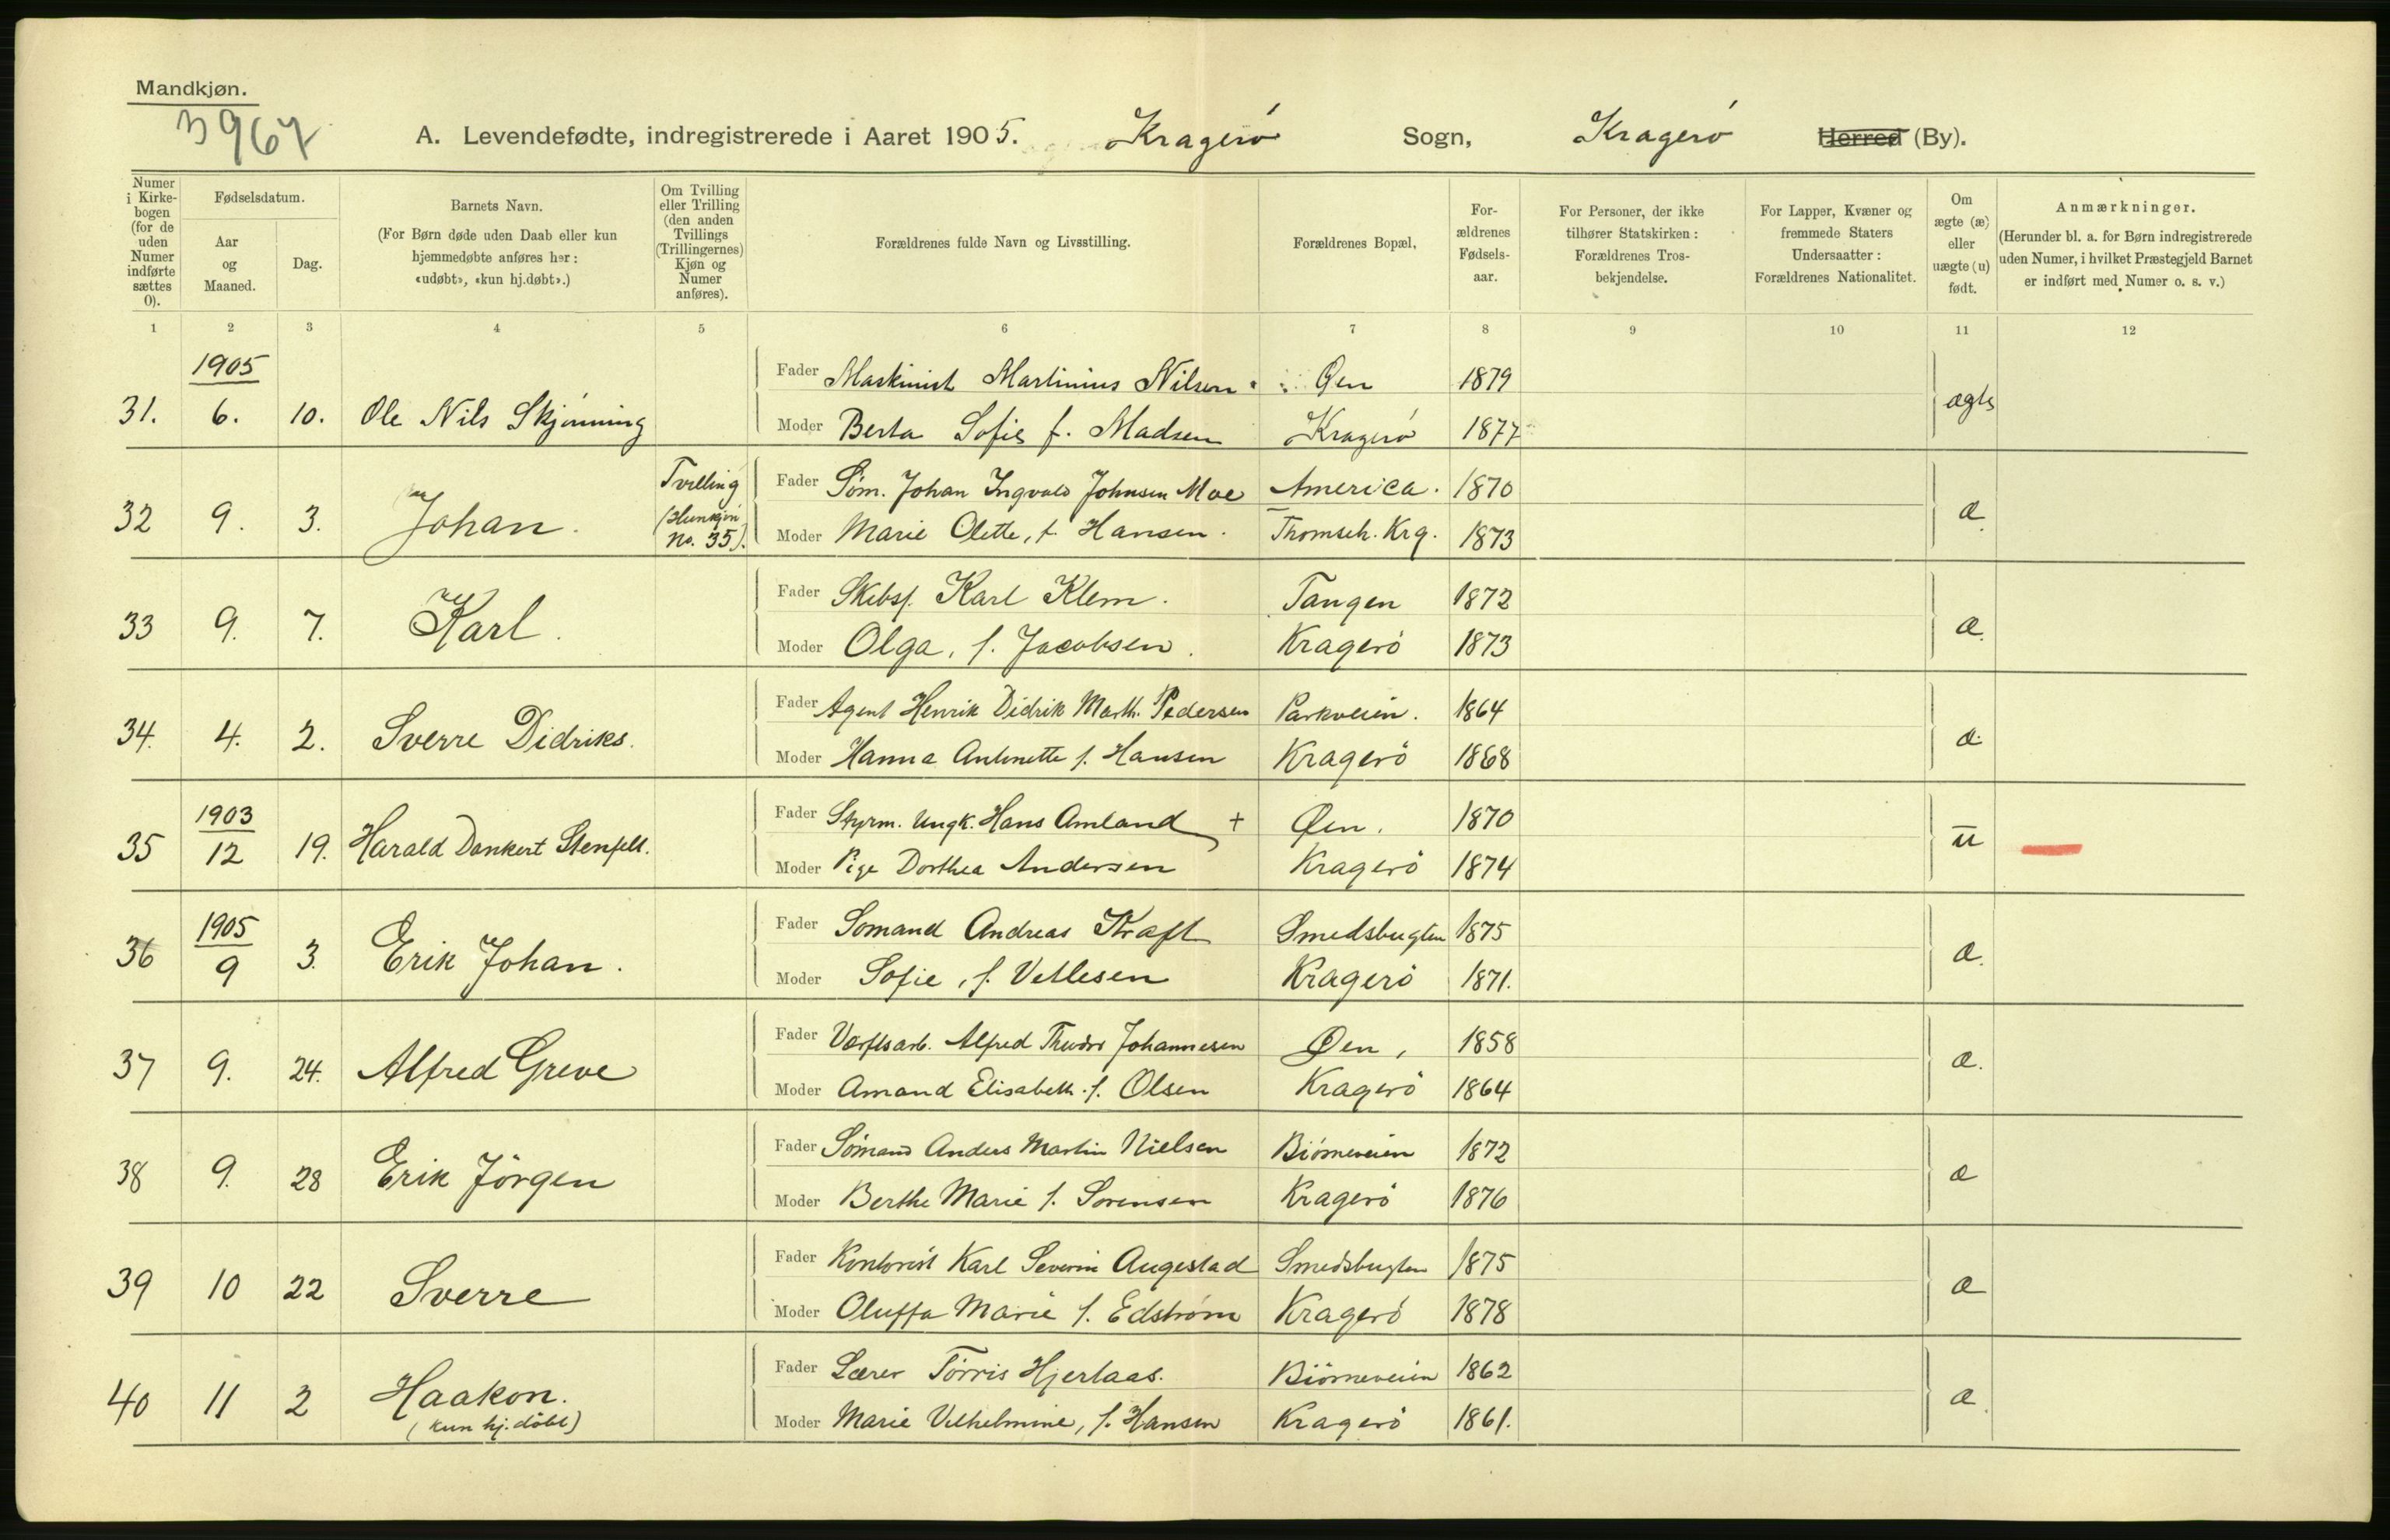 Mandkjøn.
3967
A. Levendefødte, indregistrerede i Aaret 1905. Kragerö Sogn, Kragerö Herred (By).
Numer i Kirkebogen (for de uden Numer indførte sættes 0).
Fødselsdatum.
Aar og Maaned.
Dag.
Barnets Navn.
(For Børn døde uden Daab eller kun hjemmedøbte anføres her: «udøbt», «kun hj.døbt».)
Om Tvilling eller Trilling (den anden Tvillings (Trillingernes) Kjøn og Numer anføres).
Forældrenes fulde Navn og Livsstilling.
Forældrenes Bopæl,
For-ældrenes Fødsels-aar.
For Personer, der ikke tilhører Statskirken: Forældrenes Tros-bekjendelse.
For Lapper, Kvæner og fremmede Staters Undersaatter: Forældrenes Nationalitet.
Om ægte (æ) eller uægte (u) født.
Anmærkninger.
(Herunder bl. a. for Børn indregistrerede uden Numer, i hvilket Præstegjeld Barnet er indført med Numer o. s. v.)
1 2 3 4 5 6 7 8 9 10 11 12
1905
31. 6. 10. Ole Nils Skjönning Fader Maskinist Martinius Nilsen Øen 1879 ægte
Moder Berta Sofie f. Madsen Kragerö 1877
32 9. 3. Johan. Tvilling (Hunkjön No. 35). Fader Söm. Johan Ingvald Johnsen Moe America. 1870 æ.
Moder Marie Olette, f. Hansen. Thomseh. Krg. 1873
33 9. 7. Karl. Fader Skibsf. Karl Klem. Tangen 1872 æ.
Moder Olga, f. Jacobsen. Kragerö 1873
34. 4. 2. Sverre Didriks. Fader Agent Henrik Didrik Marth. Pedersen Parkveien. 1864 æ.
Moder Hanna Antonette f. Hansen Kragerö 1868
1903
35 12 19. Harald Dankert Stenfelt. Fader Styrm. Ungk. Hans Amland + Øen. 1870 u
Moder Pige Dorthea Andersen Kragerö 1874
1905
36 9 3. Erik Johan. Fader Sömand Andreas Kraft Smedsbugten 1875 æ.
Moder Sofie, f. Vetlesen Kragerö 1871.
37 9. 24. Alfred Greve Fader Værftsarb. Alfred Theodor Johannesen Øen, 1858 æ.
Moder Amand Elisabeth. f. Olsen Kragerö 1864
38 9. 28 Erik Jörgen Fader Sömand Anders Martin Nielsen Biörneveien 1872 æ
Moder Berthe Marie f. Sörensen Kragerö 1876
39 10 22 Sverre Fader Kontorist Karl Severin Augestad Smedsbugten 1875 æ
Moder Oluffa Marie f. Edström Kragerö 1878
40 11 2 Haakon. Fader Lærer Törris Hjertaas. Biörneveien 1862 æ.
(kun hj. döbt) Moder Marie Vilhelmine, f. Hansen Kragerö 1861.